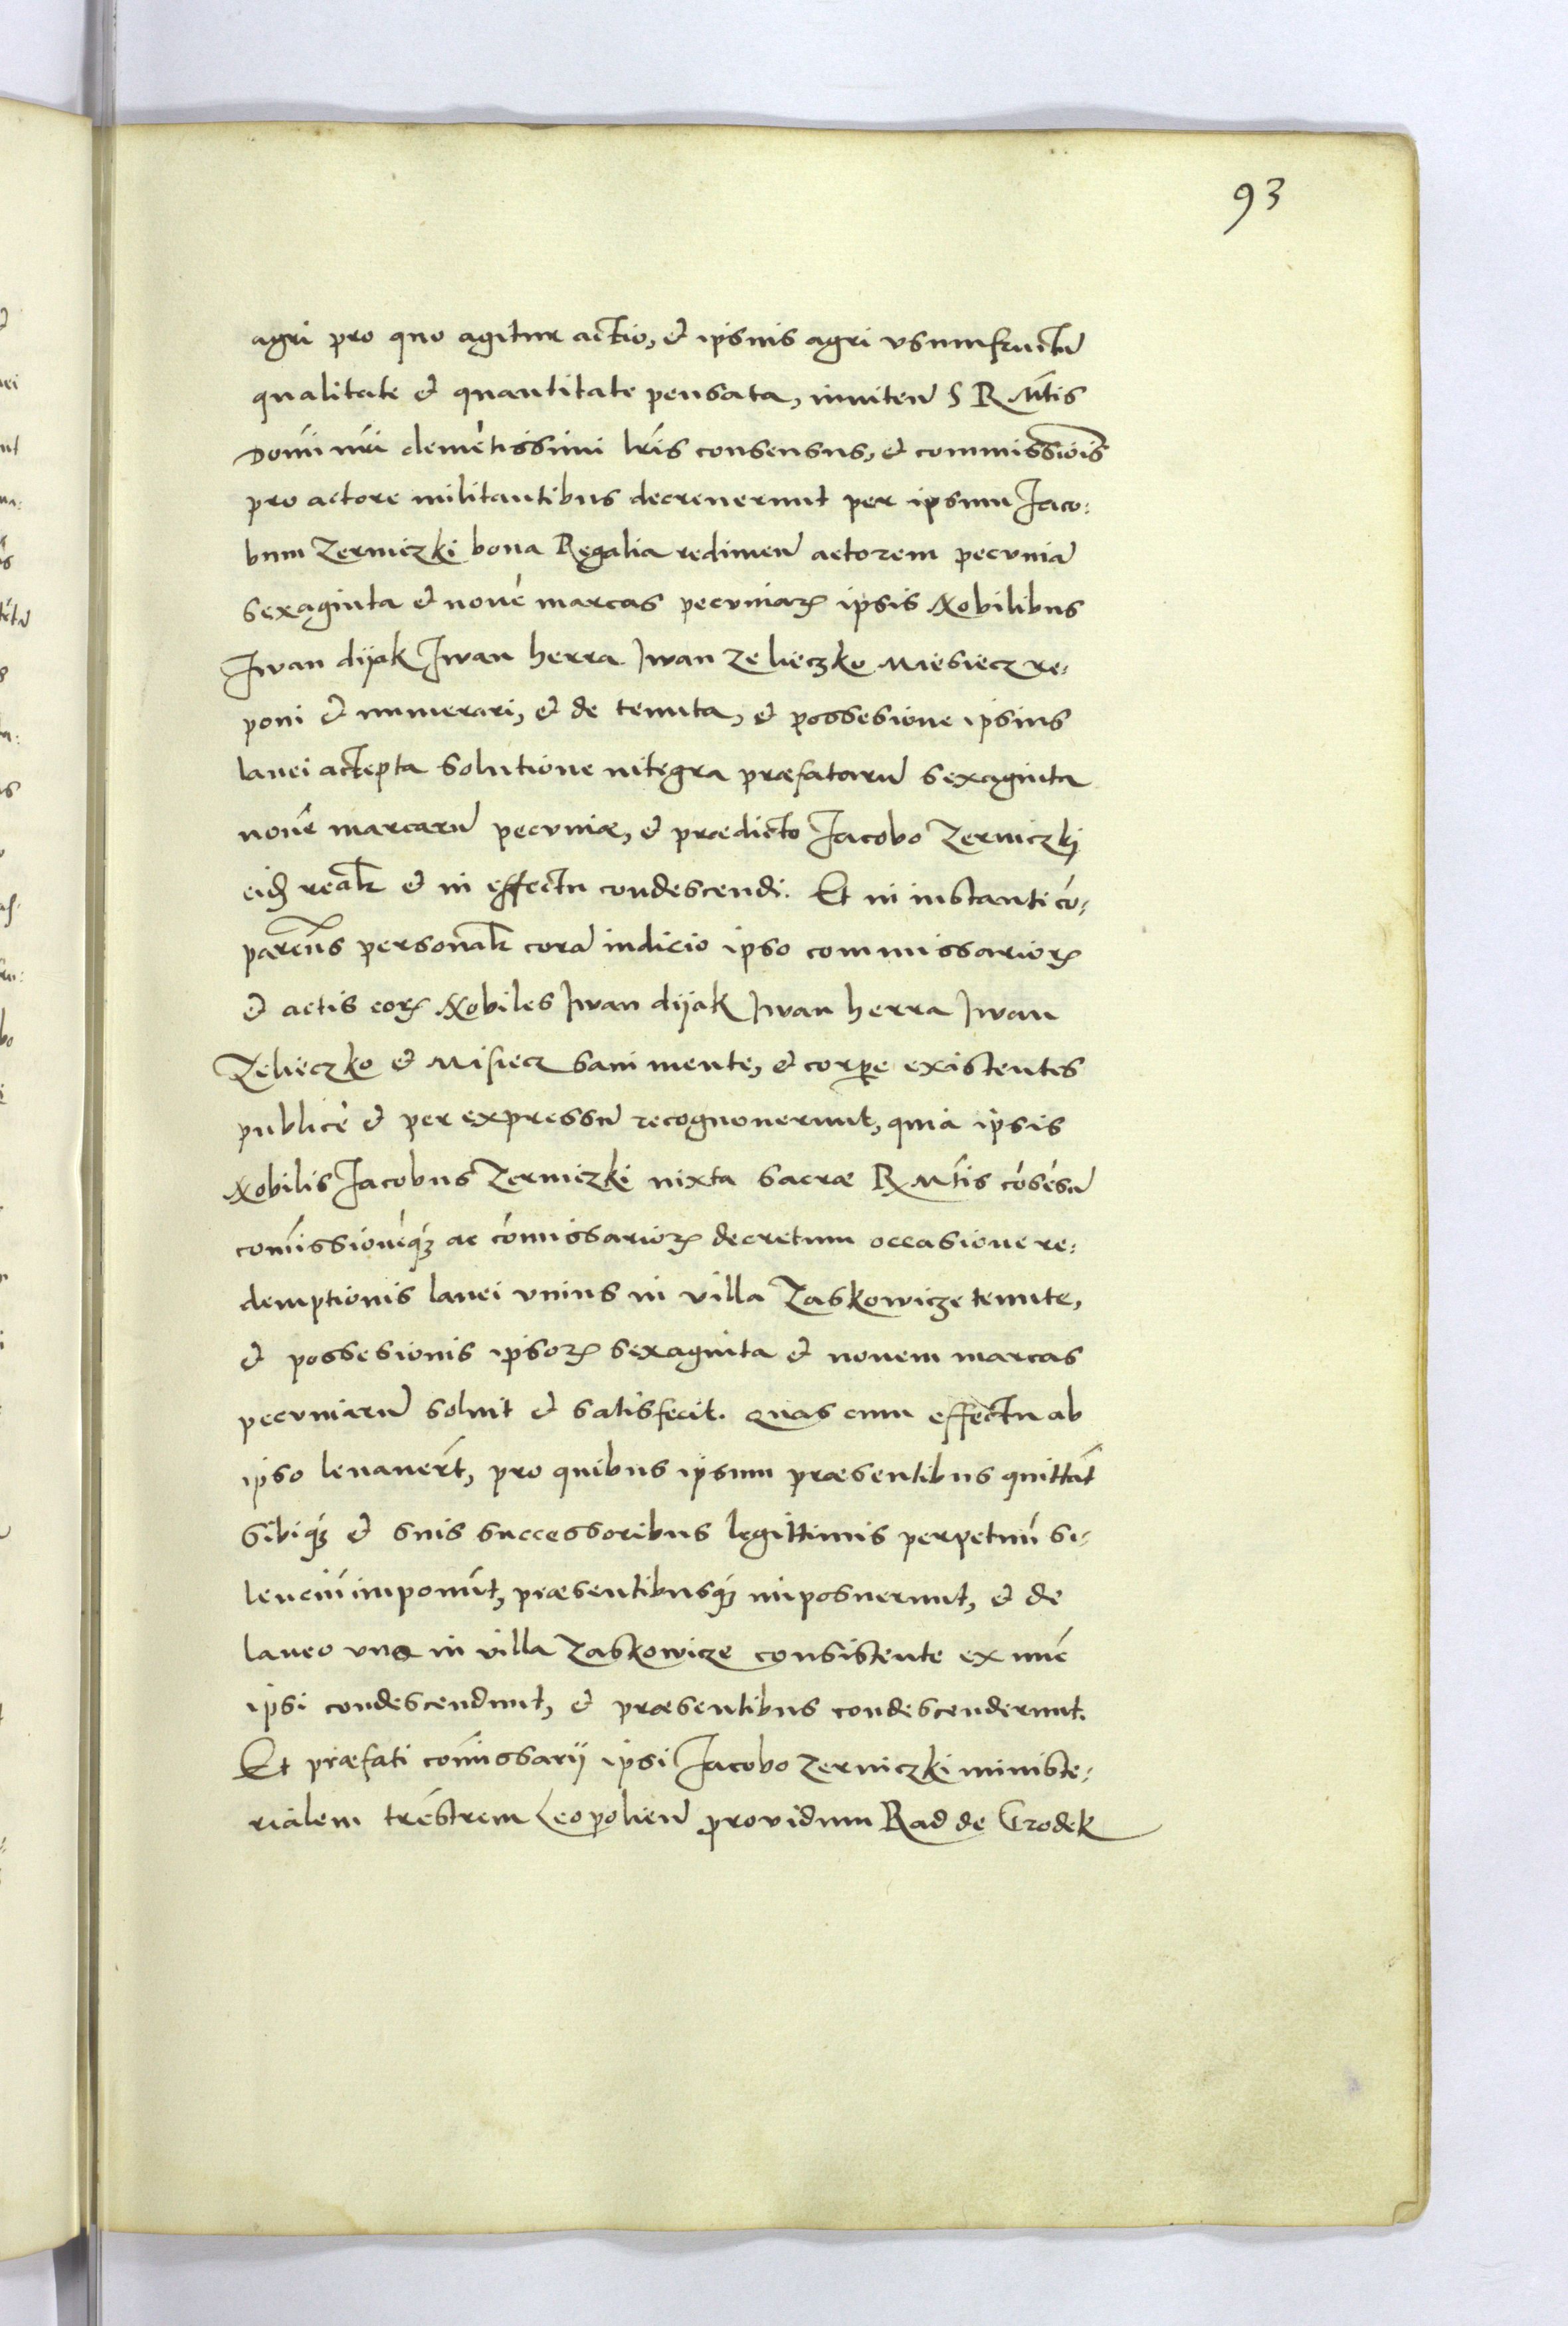 93
agri pro quo agitur actio, et ipsius agri vsumfructũ
qualitate et quantitate pensata, inniteñ S R Mtis
Domi nri clemẽtissimi lris consensus, et commissiõis
pro actore militantibus decreuerunt per ipsum Jaco:
bum Zerniczki bona Regalia redimeñ actorem pecuniã
sexaginta et nouẽ marcas pecuniaꝝ ipsis Nobilibus
Jwan dijak Jwan herra Jwan Zelieczko Miesiecz re:
poni et numerari, et de tenuta, et possesione ipsius
lanei accepta solutione integra præfatarũ sexaginta
nouẽ marcarũ pecuniæ, et prædicto Jacobo Zerniczkj
eidꝫ realr et in effectu condescendi. Et in instanti cõ:
pareñs personalr corã iudicio ipso commissarioꝝ
et actis eoꝝ Nobiles Jwan dijak Jwan herra Jwan
Zelieczko et Misiecz sani mente, et corꝑe existentes
publicè et per expressũ recognouerunt, quia ipsis
Nobilis Jacobus Zerniczki iuxta sacræ R Mtis cõsẽsũ
comissionẽqꝫ ac cõmissarioꝝ decretum occasione re:
demptionis lanei vnius in villa Zaskowicze tenute,
et possesionis ipsoꝝ sexaginta et nouem marcas
pecuniarũ soluit et satisfecit. Quas cum effectu ab
ipso leuauerт̃, pro quibus ipsum præsentibus quittãt
sibiqꝫ et suis successoribus legittimis perpetuũ si:
lenciũ imponũt, præsentibusqꝫ imposuerunt, et de
laneo vno in villa Zaskowicze consistente ex nũc
ipsi condescendunt, et præsentibus condescenderunt.
Et præfati comissarij ipsi Jacobo Zerniczki ministe:
rialem trẽstrem Leopolieñ prouidum Rad de Grodek